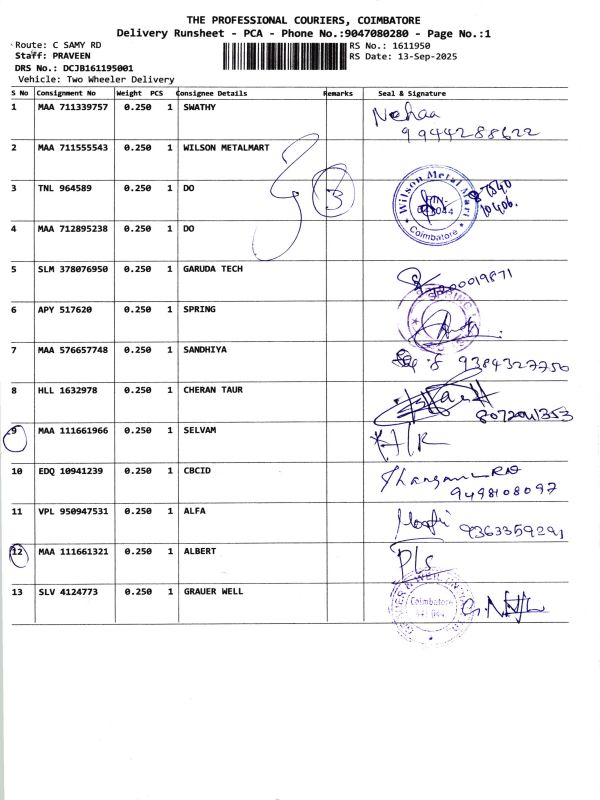 THE PROFESSIONAL COURIERS, COIMBATORE
Delivery Runsheet - PCA - Phone No.:9047080280 - Page No.:1
Route: C SAMY RD
RS No.: 1611950
Staff: PRAVEEN
RS Date: 13-Sep-2025
DRS No.: DCJB161195001
Vehicle: Two Wheeler Delivery
S No Consignment No Weight PCS Consignee Details Remarks Seal & Signature
1 MAA 711339757 0.250 1 SWATHY Nehaa
9944288622
2 MAA 711555543 0.250 1 WILSON METALMART
3 TNL 964589 0.250 1 DO 3 Wilson Metal Mart
Coimbatore
4 MAA 712895238 0.250 1 DO
5 SLM 378076950 0.250 1 GARUDA TECH
6 APY 517620 0.250 1 SPRING SPRING
7 MAA 576657748 0.250 1 SANDHIYA 9384327750
8 HLL 1632978 0.250 1 CHERAN TAUR
8072041353
9 MAA 111661966 0.250 1 SELVAM H/R
10 EDQ 10941239 0.250 1 CBCID
9498108097
11 VPL 950947531 0.250 1 ALFA 9363359291
12 MAA 111661321 0.250 1 ALBERT Pls
13 SLV 4124773 0.250 1 GRAUER WELL Coimbatore